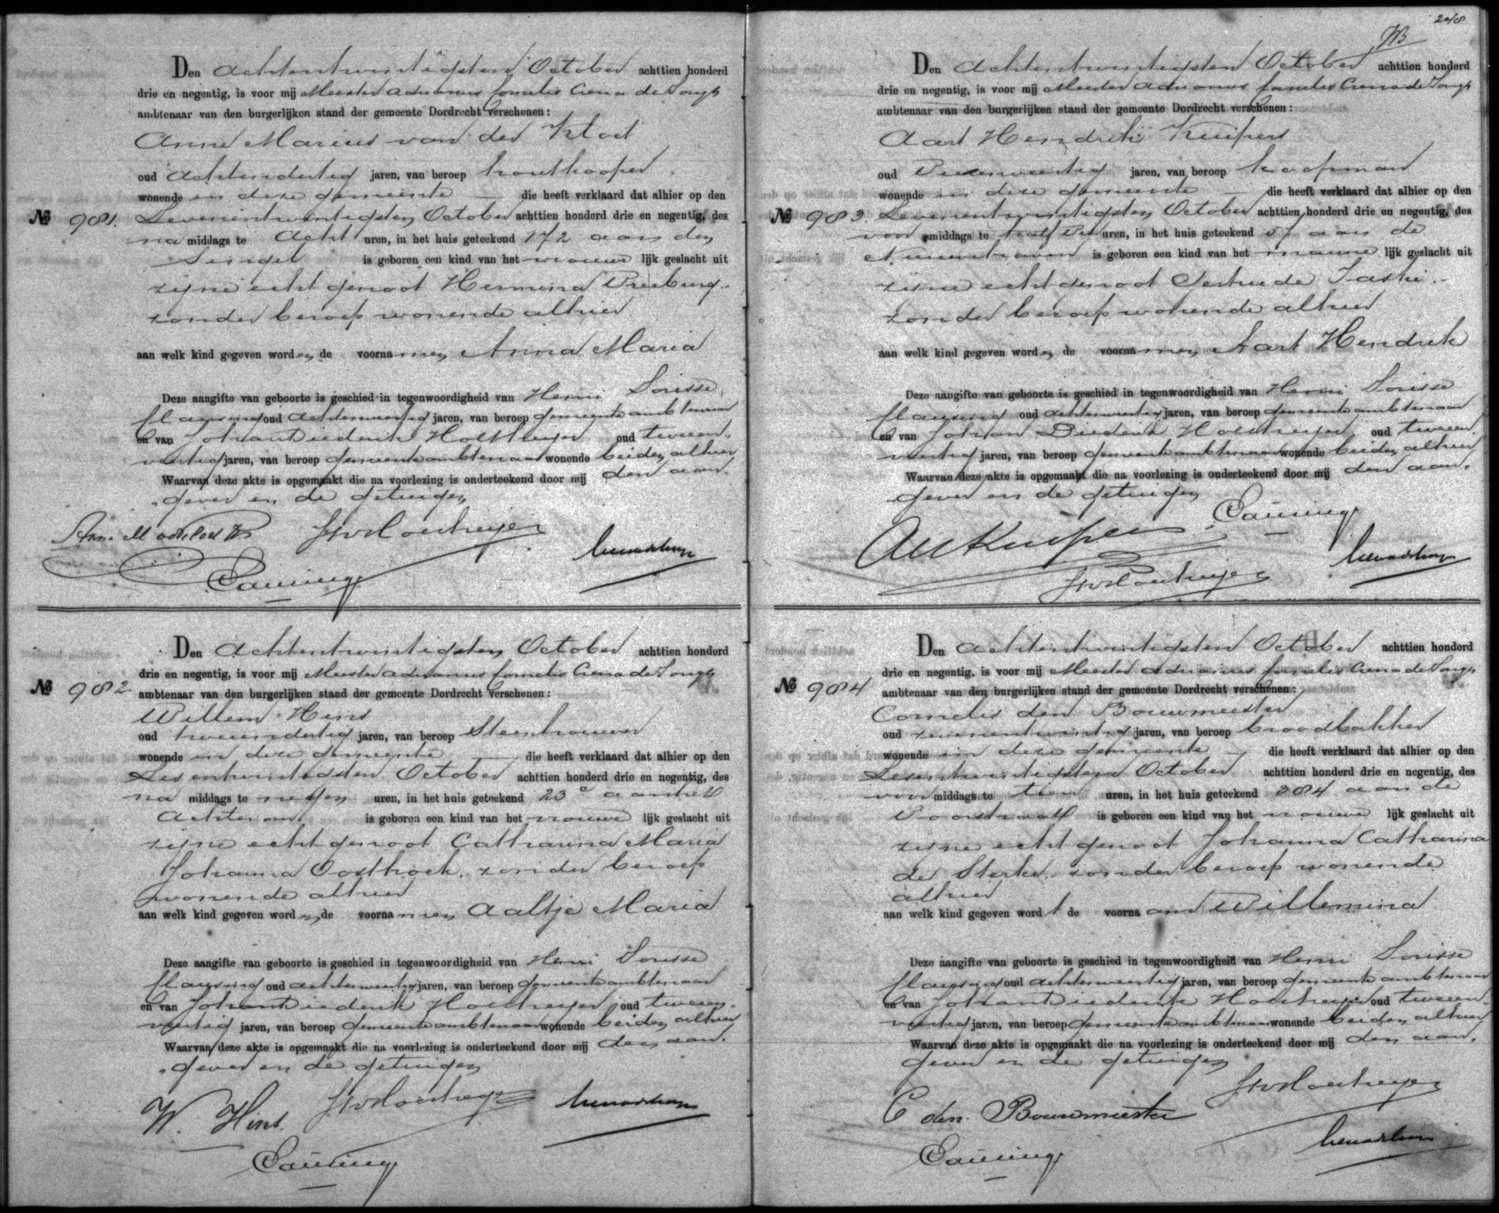 Den achtentwintigsten October achttien honderd
drie en negentig, is voor mij Meester Adrianus Cornelis Crena de Iongh
ambtenaar van den burgerlijken stand der gemeente Dordrecht verschenen:
Anne Marius van der
oud achtendertig jaren, van beroep houtkooper
wonende in deze gemeente die heeft verklaard dat alhier op den
№ 981. zevenentwintigsten October achttien honderd drie en negentig, des
na middags te acht uren, in het huis geteekend 172 aan den
Singel is geboren een kind van het vrouwe lijk geslacht uit
zijne echtgenoot Hermina
zonder beroep wonende alhier
aan welk kind gegeven worden de voornamen Anna Maria
Deze aangifte van geboorte is geschied in tegenwoordigheid van Henri
oud achtenveertig jaren, van beroep gemeente ambtenaar
en van Johan Diederik oud tweeen-
veertig jaren, van beroep gemeente ambtenaar wonende beiden alhier
Waarvan deze akte is opgemaakt die na voorlezing is onderteekend door mij den aan-
gever en de getuigen
Den achtentwintigsten October achttien honderd
drie en negentig, is voor mij Meester Adrianus Cornelis Crena de Iongh
№ 982 ambtenaar van den burgerlijken stand der gemeente Dordrecht verschenen:
Willem Hins
oud tweeendertig jaren, van beroep Steenhouwer
wonende in deze gemeente die heeft verklaard dat alhier op den
zesentwintigsten October achttien honderd drie en negentig, des
na middags te negen uren, in het huis geteekend 23c aan het
Achterom is geboren een kind van het vrouwe lijk geslacht uit
zijne echtgenoot Catharina Maria
Johanna Oosthoek, zonder beroep
wonende alhier
aan welk kind gegeven worden de voornamen Aaltje Maria
Deze aangifte van geboorte is geschied in tegenwoordigheid van Henri
oud achtenveertig jaren, van beroep gemeente ambtenaar
en van Johan Diederik oud tweeen-
veertig jaren, van beroep gemeente ambtenaar wonende beiden alhier
Waarvan deze akte is opgemaakt die na voorlezing is onderteekend door mij den aan-
gever en de getuigen
W. Hins.
248
Den achtentwintigsten October achttien honderd
drie en negentig, is voor mij Meester Adrianus Cornelis Crena de Iongh
ambtenaar van den burgerlijken stand der gemeente Dordrecht verschenen:
Aart Hendrik Kuipers
oud jaren, van beroep koopman
wonende in deze gemeente die heeft verklaard dat alhier op den
№ 983. zevenentwintigsten October achttien honderd drie en negentig, des
voor middags te half uren, in het huis geteekend 57 aan de
Nieuwehaven is geboren een kind van het manne lijk geslacht uit
zijne echtgenoot
zonder beroep wonende alhier
aan welk kind gegeven worden de voornamen Aart Hendrik
Deze aangifte van geboorte is geschied in tegenwoordigheid van Henri
oud achtenveertig jaren, van beroep gemeente ambtenaar
en van Johan Diederik oud tweeen-
veertig jaren, van beroep gemeente ambtenaar wonende beiden alhier
Waarvan deze akte is opgemaakt die na voorlezing is onderteekend door mij den aan-
gever en de getuigen
AH Kuipers
Den achtentwintigsten October achttien honderd
drie en negentig, is voor mij Meester Adrianus Cornelis Crena de Iongh
№ 984 ambtenaar van den burgerlijken stand der gemeente Dordrecht verschenen:
Cornelis den Bouwmeester
oud zevenentwintig jaren, van beroep broodbakker
wonende in deze gemeente die heeft verklaard dat alhier op den
zesentwintigsten October achttien honderd drie en negentig, des
voor middags te tien uren, in het huis geteekend 284 aan de
Voorstraat is geboren een kind van het vrouwe lijk geslacht uit
zijne echtgenoot Johanna Catharina
de Sterke, zonder beroep wonende
alhier
aan welk kind gegeven wordt de voornaam Willemina
Deze aangifte van geboorte is geschied in tegenwoordigheid van Henri
oud achtenveertig jaren, van beroep gemeente ambtenaar
en van Johan Diederik oud tweeen-
veertig jaren, van beroep gemeente ambtenaar wonende beiden alhier
Waarvan deze akte is opgemaakt die na voorlezing is onderteekend door mij den aan-
gever en de getuigen
C den Bouwmeester